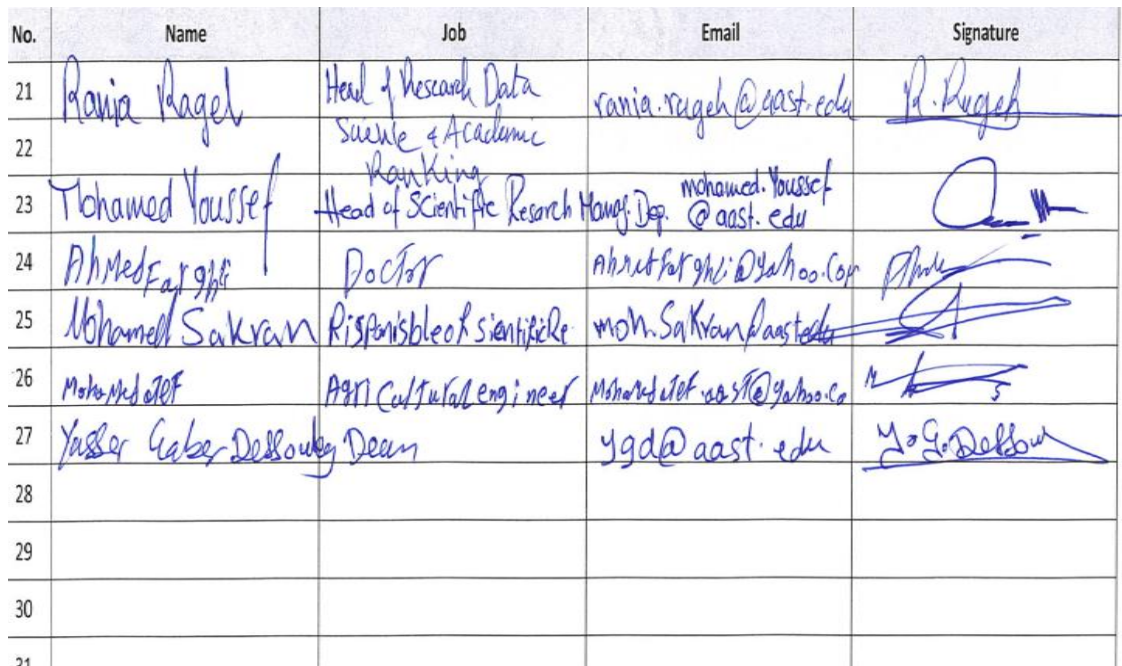 No. Name Job Email Signature
21 Rania Ragel Head of Research Data rania.rageh@aast.edu R.Rageh
22 Science & Academic
Ranking
23 Mohamed Youssef Head of Scientific Resarch Manag. Dep. mohamed.Youssef
@aast.edu
24 Ahmed Farghli Doctor @yahoo.com
25 Mohamed Sakran moh.Sakran@aast.edu
26 Agricultural engineer
27 Yasser Gaber Dessouky Dean ygd@aast.edu Y.G.Dessou
28
29
30
31